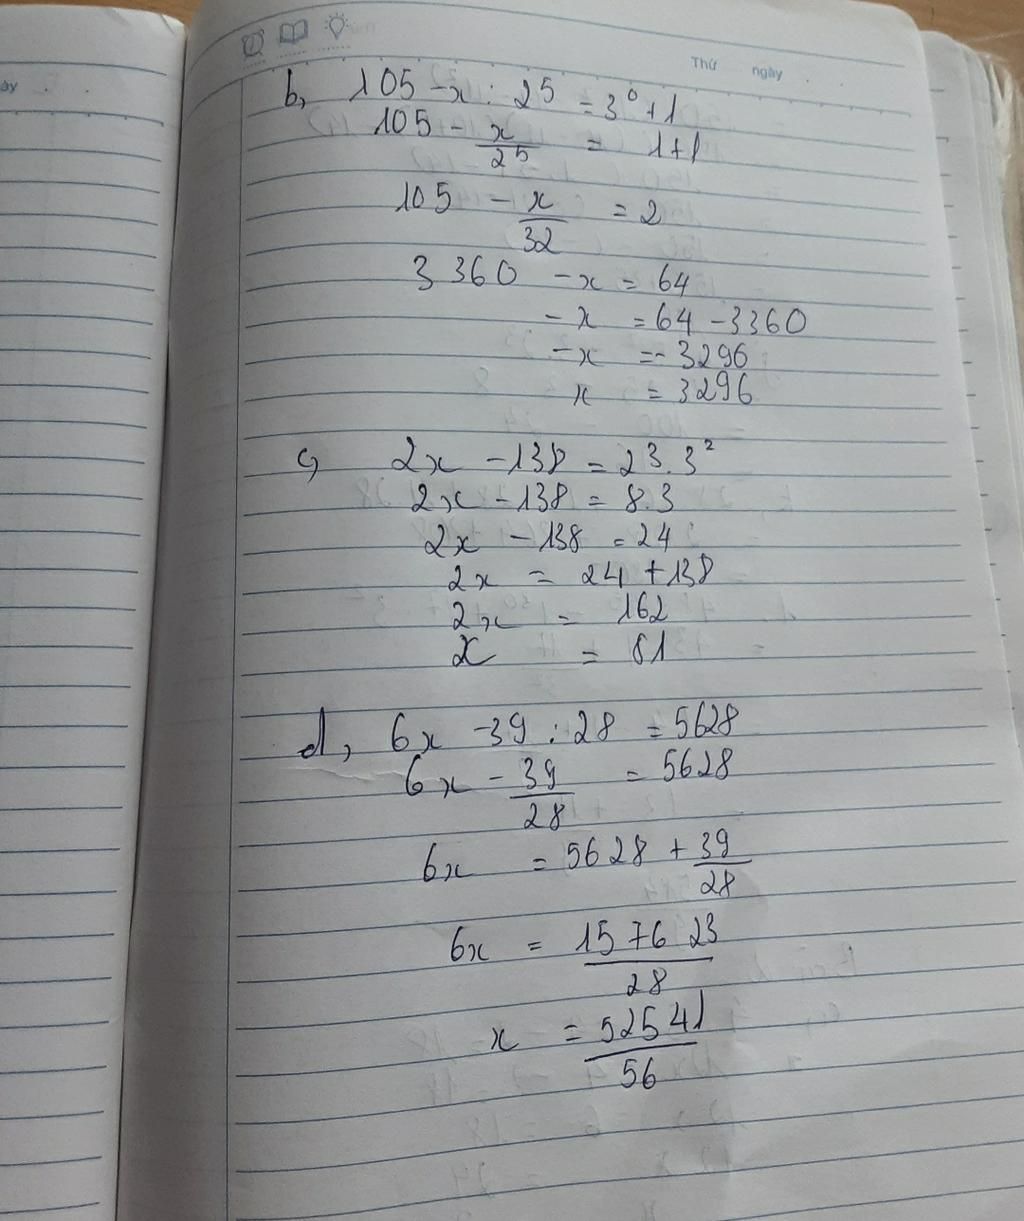 ày
Thứ ngày
b, 105 - x : 2⁵ = 3⁰ + 1
105 - x/2⁵ = 1 + 1
105 - x/32 = 2
3360 - x = 64
- x = 64 - 3360
- x = - 3296
x = 3296
c, 2x - 138 = 2³ . 3²
2x - 138 = 8 . 3
2x - 138 = 24
2x = 24 + 138
2x = 162
x = 81
d, 6x - 39 : 28 = 5628
6x - 39/28 = 5628
6x = 5628 + 39/28
6x = 157623/28
x = 52541/56